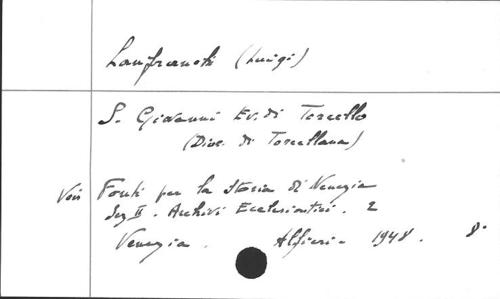 Lanfranchi (Luigi)
S. Giovanni Ev. di Torcello
(Dioc. di Torcellana)
Voir Fonti per la Storia di Venezia
Sez II. Archivi Ecclesiastici. 2
Venezia. Alfieri - 1948. 8°